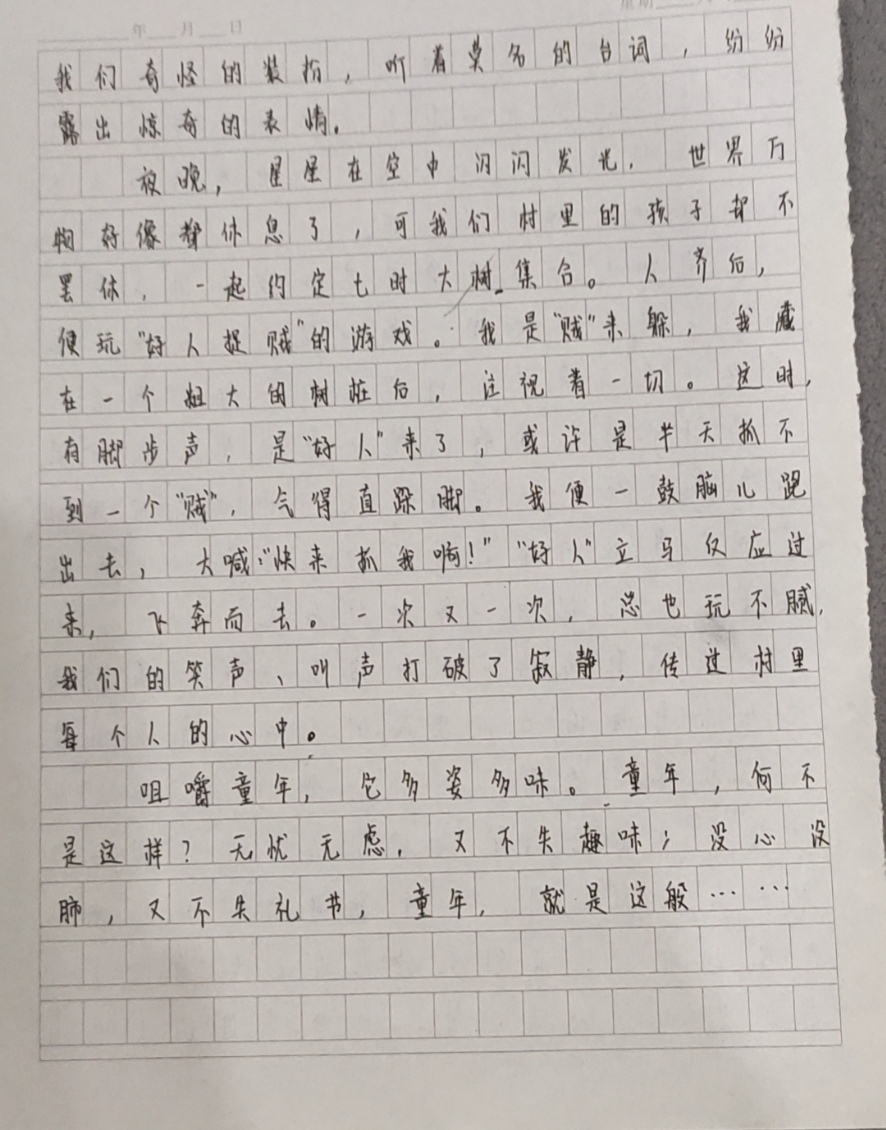 年 月 日 星期
我们奇怪的装扮，听着莫名的台词，纷纷
露出惊奇的表情。
夜晚，星星在空中闪闪发光，世界万
物好像都休息了，可我们村里的孩子却不
罢休，一起约定七时大树集合。人齐后，
便玩“好人捉贼”的游戏。我是“贼”来躲，我藏
在一个粗大的树桩后，注视着一切。这时，
有脚步声，是“好人”来了，或许是半天抓不
到一个“贼”，气得直跺脚。我便一鼓脑儿跑
出去，大喊：“快来抓我啊！”“好人”立马反应过
来，飞奔而去。一次又一次，总也玩不腻，
我们的笑声、叫声打破了寂静，传过村里
每个人的心中。
咀嚼童年，它多姿多味。童年，何不
是这样？无忧无虑，又不失趣味；没心没
肺，又不失礼节，童年，就是这般……